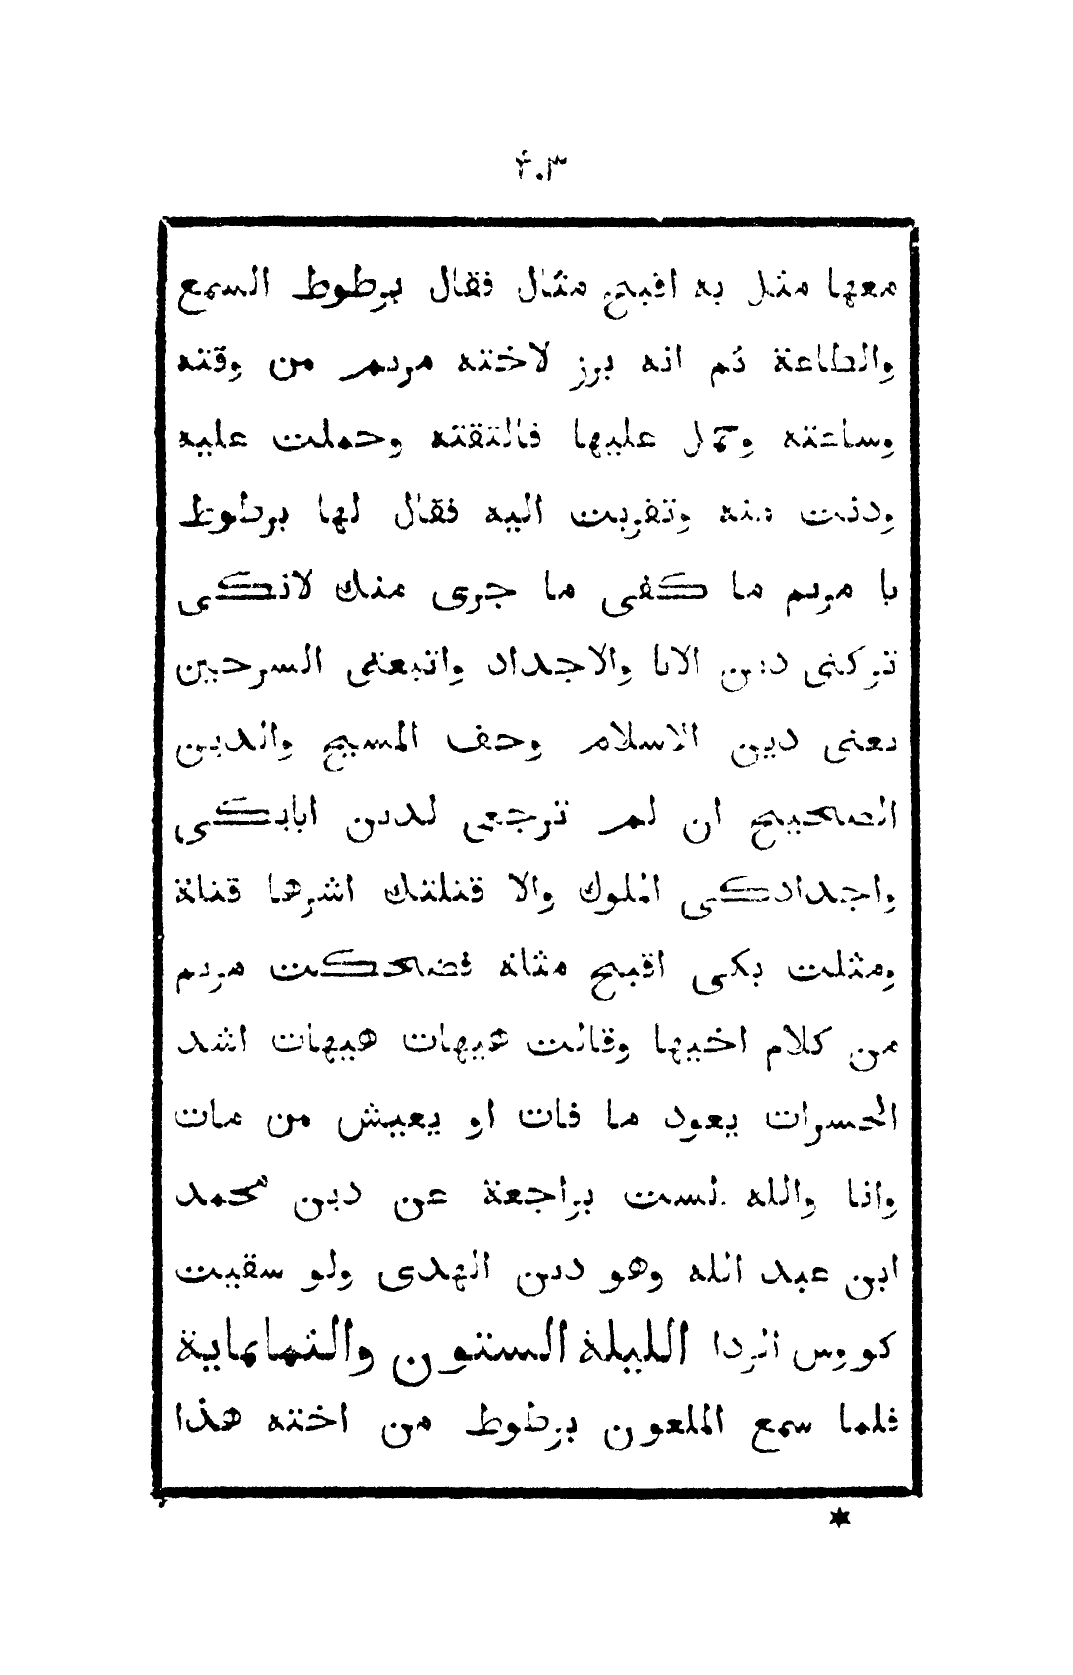 ٤٠٣
معها مثل به اقبح مثال فقال برطوط السمع
والطاعة ثم انه برز لاخته مريم من وقته
وساعته وحمل عليها فالتقته وحملت عليه
ودنت منه وتقربت اليه فقال لها برطوط
يا مريم ما كفى ما جرى منك لانكى
تركتى دين الابا والاجداد واتبعتى السرحين
يعنى دين الاسلام وحق المسيح والدين
الصحيح ان لم ترجعى لدين ابايكى
واجدادكى الملوك والا قتلتك اشرها قتلة
ومثلت بكى اقبح مثلة فضحكت مريم
من كلام اخيها وقالت هيهات هيهات اشد
الحسرات يعود ما فات او يعيش من مات
وانا والله لست براجعة عن دين محمد
ابن عبد الله وهو دين الهدى ولو سقيت
كووس الردا الليلة الستون والثمانماية
فلما سمع الملعون برطوط من اخته هذا
*